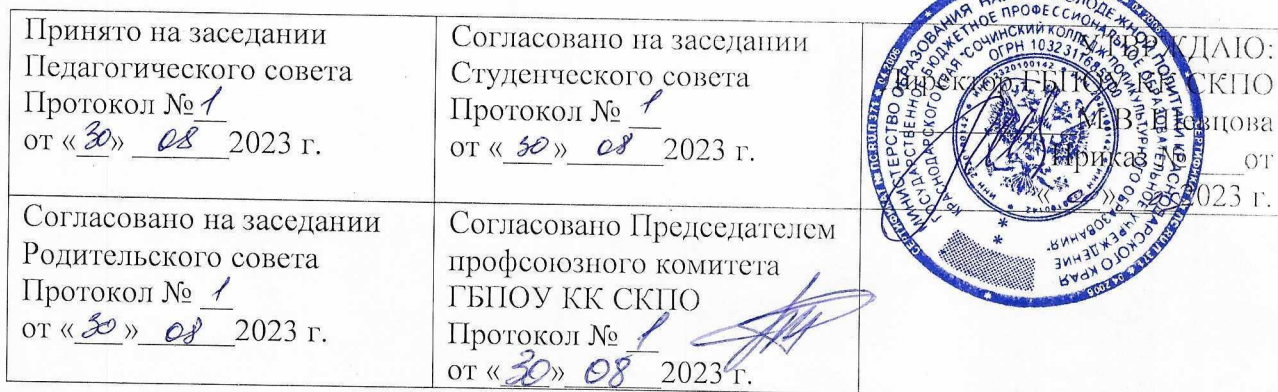 Принято на заседании
Педагогического совета
Протокол № 1
от «30» 08 2023 г.
Согласовано на заседании
Студенческого совета
Протокол № 1
от «30» 08 2023 г.
УТВЕРЖДАЮ:
Директор ГБПОУ КК СКПО
М.В. Шевцова
Приказ № ___ от
«___» 2023 г.
Согласовано на заседании
Родительского совета
Протокол № 1
от «30» 08 2023 г.
Согласовано Председателем
профсоюзного комитета
ГБПОУ КК СКПО
Протокол № 1
от «30» 08 2023 г.
МИНИСТЕРСТВО ОБРАЗОВАНИЯ КРАСНОДАРСКОГО КРАЯ
ГОСУДАРСТВЕННОЕ БЮДЖЕТНОЕ ПРОФЕССИОНАЛЬНОЕ ОБРАЗОВАТЕЛЬНОЕ УЧРЕЖДЕНИЕ
КРАСНОДАРСКОГО КРАЯ "СОЧИНСКИЙ КОЛЛЕДЖ ПОЛИКУЛЬТУРНОГО ОБРАЗОВАНИЯ"